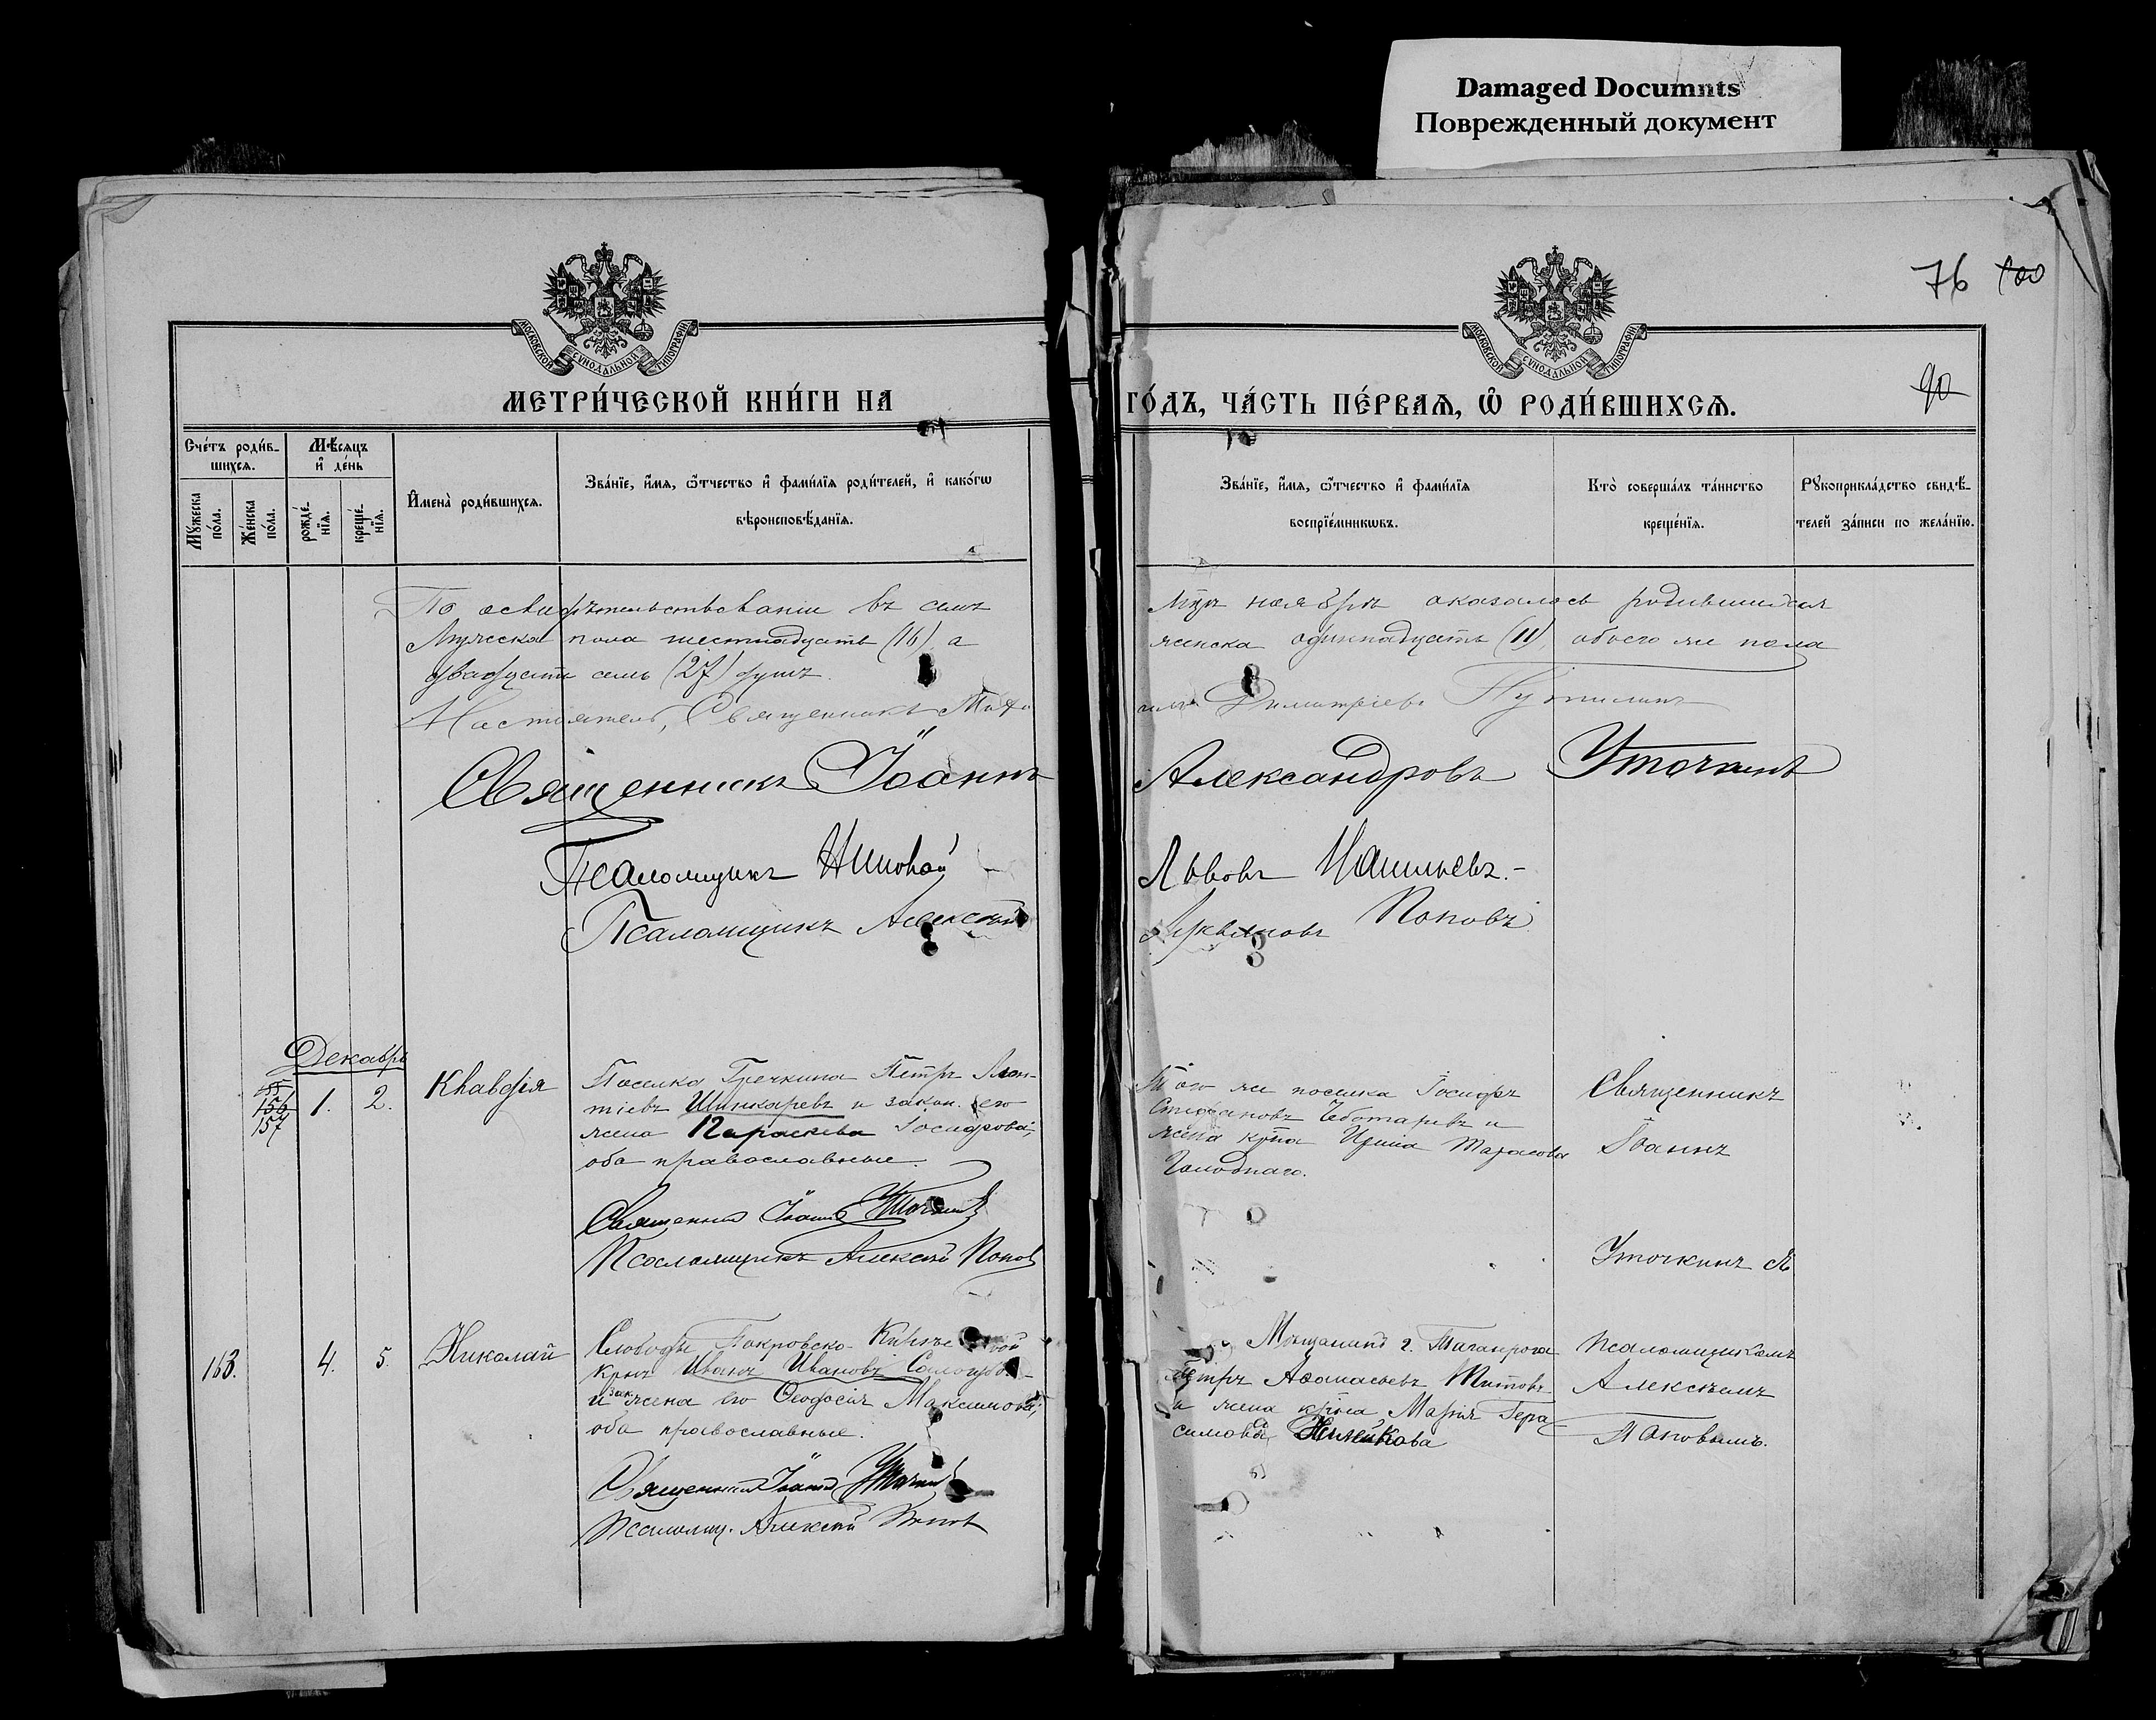 Damaged Documnts
Поврежденный документ
76 100
МОСКОВСКОЙ СУНОДАЛЬНОЙ ТИПОГРАФІИ
МОСКОВСКОЙ СУНОДАЛЬНОЙ ТИПОГРАФІИ
МЕТРИ́ЧЕСКОЙ КНИ́ГИ НА
ГО́ДЪ, ЧА́СТЬ ПЕ́РВАѦ, Ѡ РОДИ́ВШИХСѦ.
90
Сче́тъ роди́в-
шихсѧ.
Мѣ́сѧцъ
и҆ де́нь
Мꙋ́жеска
по́ла.
Же́нска
по́ла.
рожде́-
нїѧ.
креще́-
нїѧ.
И҆мена̀ роди́вшихсѧ.
Зва́нїе, и҆́мѧ, ѻ҆́тчество и҆ фами́лїѧ роди́телей, и҆ како́гѡ
вѣроисповѣ́данїѧ.
Зва́нїе, и҆́мѧ, ѻ҆́тчество и҆ фами́лїѧ
воспрїе́мникѡвъ.
Кто̀ соверша́лъ та́инство
креще́нїѧ.
Рꙋкоприкла́дство свидѣ́-
телей за́писи по жела́нїю.
По освидѣтельствованіи въ семъ
Мужеска пола шестнадцать (16), а
двадцать семь (27) душъ.
Настоятель, Священникъ
Священникъ Іоаннъ
Псаломщикъ
Псаломщикъ Алексѣй
ноябрѣ оказалось родившихся
женска одиннадцать (11), обоего же пола
Димитріевъ Путилинъ
Александровъ Уточкинъ
Львовъ
Поповъ
Декабрь
55
156
157
1.
2.
Клавдія
Поселка Гречкина Петръ Леон-
тіевъ Шинкаревъ и закон. его
жена Параскева Іосифова,
оба православные.
Священникъ Іоаннъ Уточкинъ
Псаломщикъ Алексѣй Поповъ
Того же поселка Іосифъ
Стефановъ Чеботаревъ и
жена Ирина Тарасова
Голоднаго.
Священникъ
Іоаннъ
Уточкинъ
168.
4.
5.
Николай
Слободы Покровско-
Иванъ Ивановъ
и зак. жена его Ѳеодосія Максимова,
оба православные.
Священникъ Іоаннъ Уточкинъ
Псаломщ. Алексѣй Поповъ
Мѣщанинъ г. Таганрога
Петръ Аѳанасьевъ Титовъ
и жена Марія Гера-
симова
Псаломщикомъ
Алексѣемъ
Поповымъ.